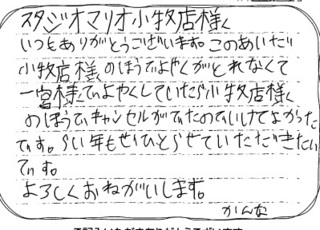 スタジオマリオ小牧店様く
いつもありがとうございます。このあいだ
小牧店様のほうでよやくがとれなくて
一宮様でよやくしていたら小牧店様く
のほうでキャンセルがでたのでいけてよかった
です。らい年もぜひとらせていただきたい
です。
よろしくおねがいします。
かんな